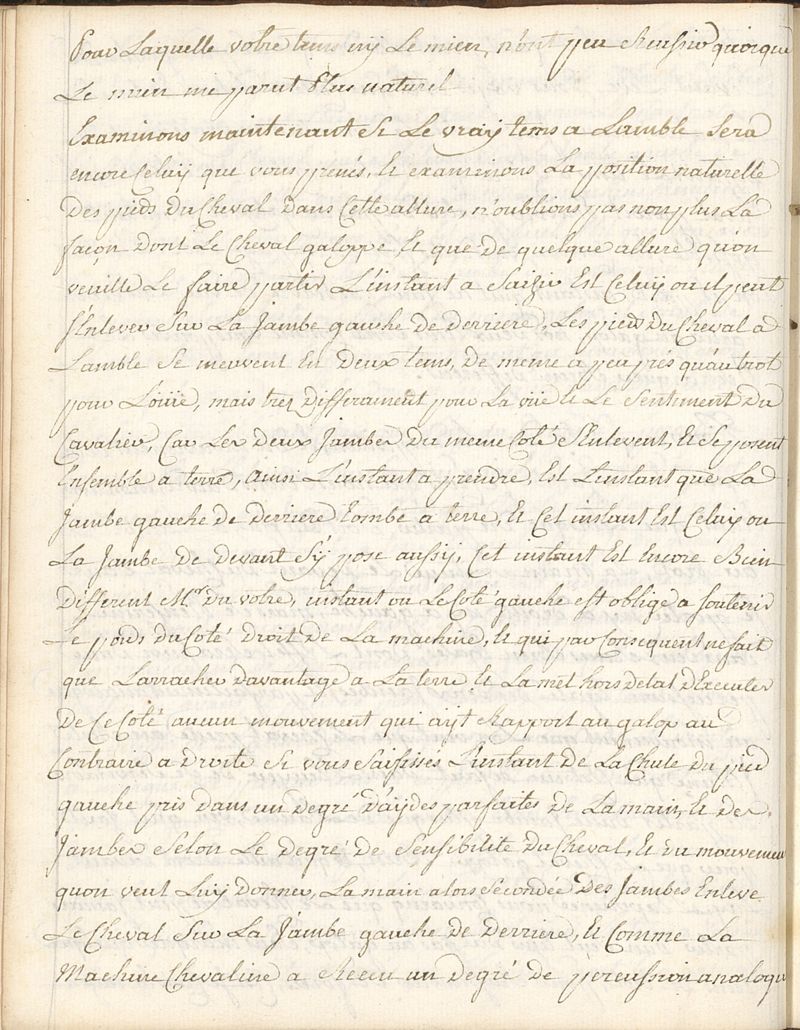 Pour Laquelle votre tems ny Le mien, n'ont peu Reussir quoique
Le mien me parut Plus naturel
Examinons maintenant Si Le vray tems a Lamble Sera
encore Celuy que vous prenés, Et examinons La position naturelle
Des pieds Du Cheval Dans Cette allure, n'oublions pas non plus La
façon Dont Le Cheval galoppe, Et que de quelque allure qu'on
veuille Le faire partir L'instant a Saisir Est Celuy ou il peut
S'Enlever Sur La Jambe gauche de Derriere, Les pieds Du Cheval a
Lamble Se meuvent En Deux tems, De meme a peu prés qu'au trot
pour L'oüie, mais trez Differament pour La vüe Et Le Sentiment Du
Cavalier, Car Les Deux Jambes Du meme Coté S'Enlevent, Et Se posent
Ensemble a terre, ainsi L'instant a prendre, Est L'instant que La
Jambe gauche de Derriere tombe a terre, Et Cet instant Est Celuy ou
La Jambe de Devant S'y pose aussy, Cet instant Est Encore Bien
Different M.r Du votre, instant ou Le Coté gauche est obligé a Soutenir
Le poids Du Coté Droit De La machine, Et qui par Consequent ne fait
que Larracher Davantage a La terre Et La met hors Detat D'Executer
De Ce Coté aucun mouvement qui aÿt Rapport au galop au
Contraire a Droite Si vous Saisissés L'instant De La Chute Du pied
gauche pris Dans un Degré D'aÿdes parfaites De La main, Et Des
Jambes Selon Le Degré De Sensibilité Du Cheval, Et Du mouvement
quon veut Luy Donner, La main alors Secondée Des Jambes Enleve
Le Cheval Sur La Jambe gauche de Derriere, Et Comme La
Machine Chevaline a Receu un Degré De percussion analogue